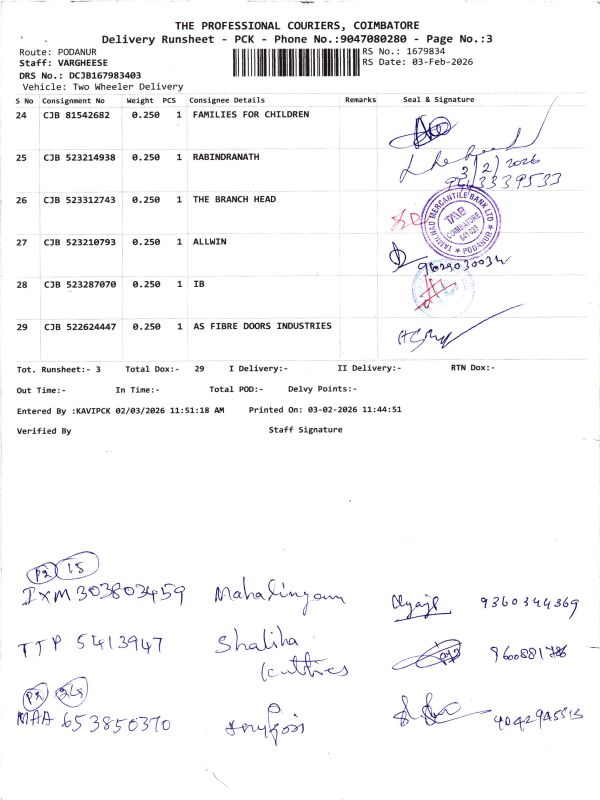 THE PROFESSIONAL COURIERS, COIMBATORE
Delivery Runsheet - PCK - Phone No.:9047080280 - Page No.:3
Route: PODANUR RS No.: 1679834
Staff: VARGHEESE RS Date: 03-Feb-2026
DRS No.: DCJB167983403
Vehicle: Two Wheeler Delivery
S No Consignment No Weight PCS Consignee Details Remarks Seal & Signature
24 CJB 81542682 0.250 1 FAMILIES FOR CHILDREN
25 CJB 523214938 0.250 1 RABINDRANATH
3/2/2026
26 CJB 523312743 0.250 1 THE BRANCH HEAD
TAMILNAD MERCANTILE BANK LTD TMB COIMBATORE 641 023 PODANUR
27 CJB 523210793 0.250 1 ALLWIN
28 CJB 523287070 0.250 1 IB
29 CJB 522624447 0.250 1 AS FIBRE DOORS INDUSTRIES
Tot. Runsheet:- 3 Total Dox:- 29 I Delivery:- II Delivery:- RTN Dox:-
Out Time:- In Time:- Total POD:- Delvy Points:-
Entered By :KAVIPCK 02/03/2026 11:51:18 AM Printed On: 03-02-2026 11:44:51
Verified By Staff Signature
IXM 303803459 Mahalingam 9360344369
TTP 5413947 Shaliha
MAA 653850370